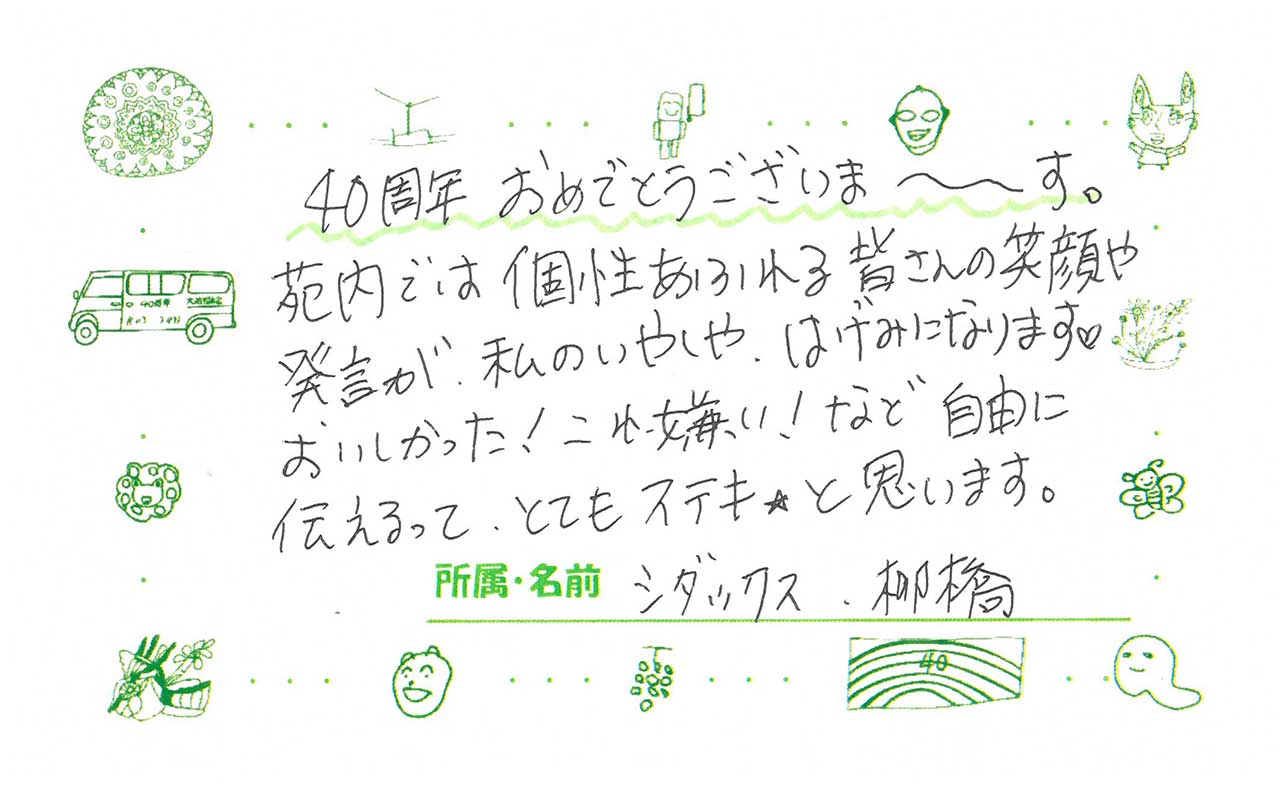 40周年 おめでとうございま〜〜す。
苑内では個性あふれる皆さんの笑顔や
発言が、私のいやしや、はげみになります♡
おいしかった！これ嫌い！など自由に
伝えるって、とてもステキ☆と思います。
所属・名前 シダックス、柳橋
40周年
40